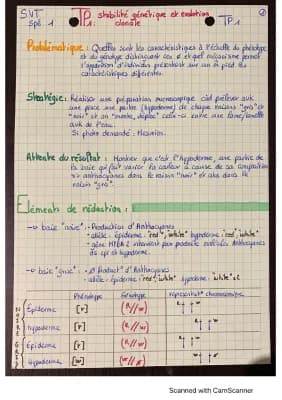 SVT
Spé 1
TP1 : stabilité génétique et évolution
clonale
TP 1
Problématique : Quelles sont les caractéristiques à l'échelle du phénotype
et du génotype distinguant ces et quel mécanisme permet
l'apparition d'individus présentant sur un pied les
caractéristiques différentes.
Stratégie : Réaliser une préparation microscopique càd prélever avec
une pince une partie (hypoderme) de chaque raisins "gris" et
"noir" et on "monte, dépose" celle-ci entre une lame/lamelle
avec de l'eau.
Si photo demandé : Mesurim.
Attente du résultat : Montrer que c'est l'hypoderme, une partie de
la baie qui fait varier la couleur à cause de sa composition
en anthocyanes dans le raisin "noir" et abs dans le
raisin "gris".
Eléments de rédaction :
→ baie "noire" : • Production d'Anthocyanes
• allèle : épiderme : "red", "white" hypoderme : "red", "white"
• gène intervient pour produire Anthocyanes
épi et hypoderme.
→ baie "grise" : • Product° d'Anthocyanes
• allèle : épiderme : "red", "white" hypoderme : "white"
Phénotype Génotype représentat° chromosomes
NOIRE
Épiderme [r] (R//w) R w
hypoderme [r] (R//w) R w
GRISE
Épiderme [r] (R//w)
Hypoderme [w]
Scanned with CamScanner